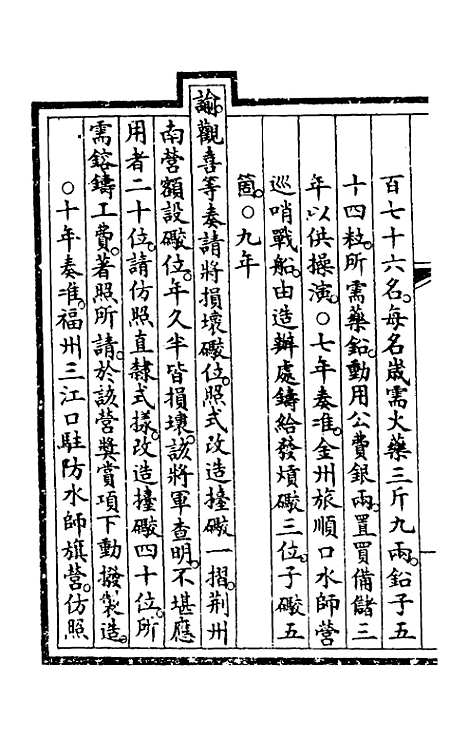 百七十六名。每名歲需火藥三斤九兩。鉛子五
十四粒。所需藥鉛。動用公費銀兩。置買備儲三
年以供操演。○七年奏准。金州旅順口水師營
巡哨戰船。由造辦處鑄給發熕礮三位。子礮五
箇。○九年
諭。觀喜等奏請將損壞礮位。照式改造擡礮一摺。荆州
南營額設礮位。年久半皆損壞。該將軍查明。不堪應
用者二十位。請仿照直隸式樣。改造擡礮四十位。所
需鎔鑄工費。著照所請。於該營獎賞項下動撥製造。
○十年奏准。福州三江口駐防水師旗營。仿照